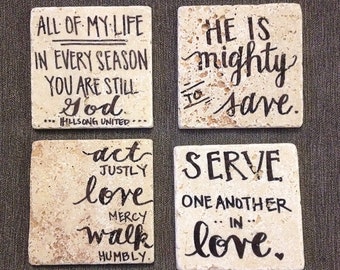 ALL OF MY LIFE
IN EVERY SEASON
YOU ARE STILL
God
... HILLSONG UNITED ...
HE IS
mighty
TO
save.
act
JUSTLY
love
MERCY
walk
HUMBLY.
SERVE
ONE ANOTHER
.. in ..
love.